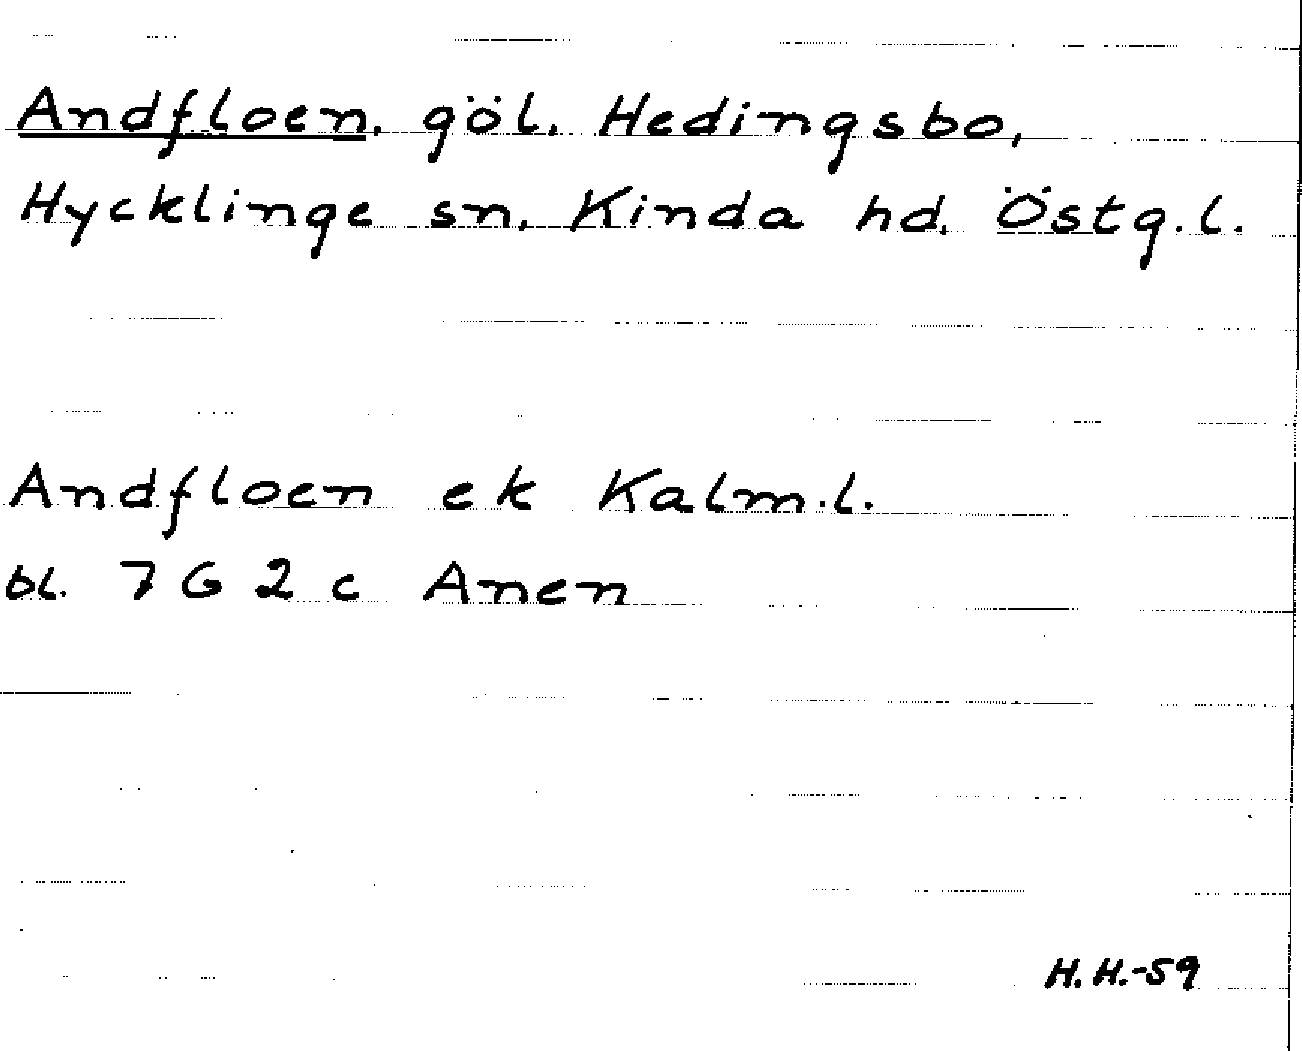 Andfloen. göl. Hedingsbo,
Hycklinge sn. Kinda hd. Östg.l.
Andfloen ek Kalm.l.
bl. 7 G 2 c Anen
H.H.-59